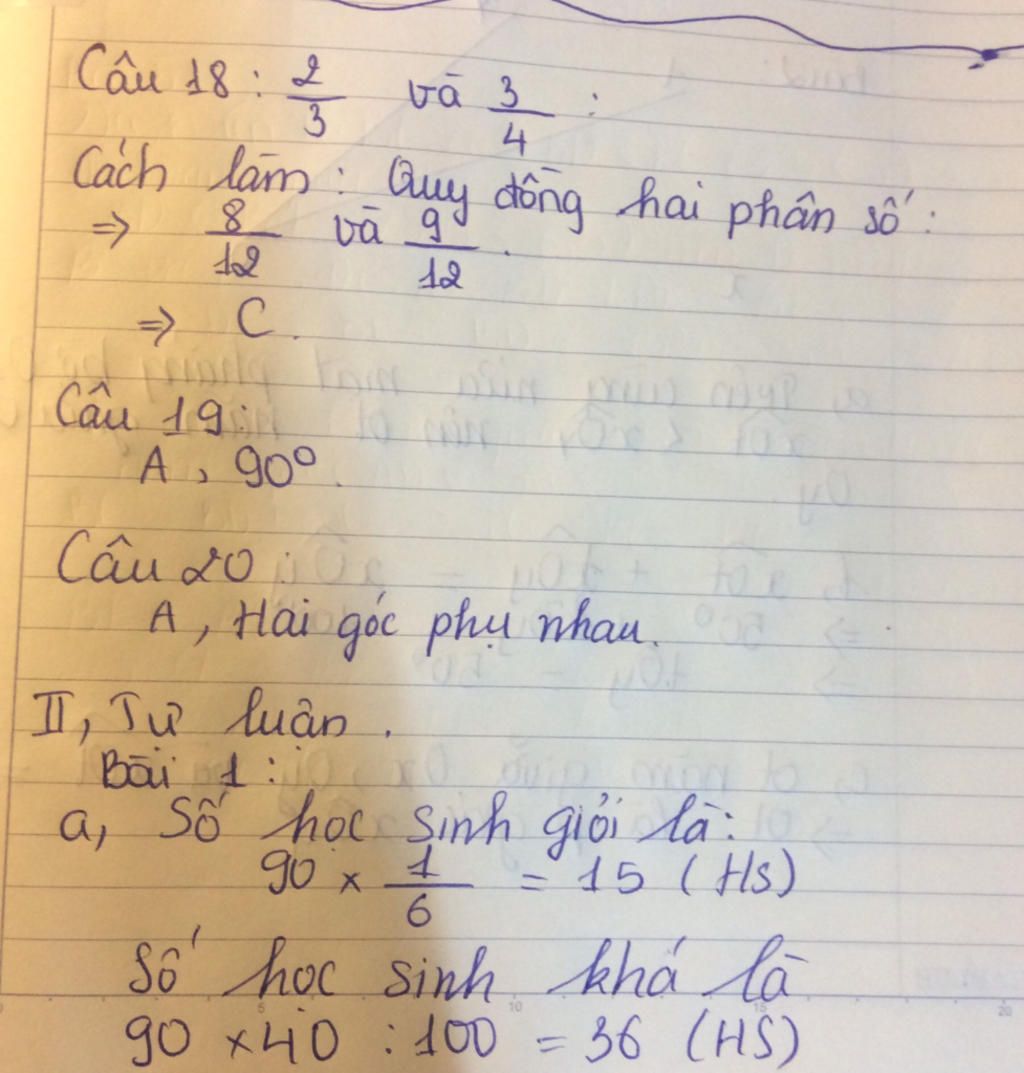 Câu 18 : 2/3 và 3/4 :
Cách làm : Quy đồng hai phân số :
=> 8/12 và 9/12 .
=> C .
Câu 19 :
A , 90° .
Câu 20 :
A , Hai góc phụ nhau .
II , Tự luận .
Bài 1 :
a, Số học sinh giỏi là :
90 × 1/6 = 15 (HS)
Số học sinh khá là
90 × 40 : 100 = 36 (HS)